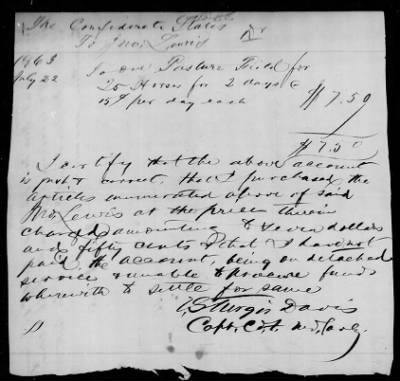 The Confederate States
To Jno. Lewis Dr
1863
July 22
To one Pasture Field for
25 Horses for 2 days @
15¢ per day each $7.50
$7.50
I certify that the above account
is just & correct, that I purchased the
articles enumerated above of said
Jno. Lewis at the prices therein
charged amounting to seven dollars
and fifty cents & that I have not
paid the account, being on detached
service & unable to procure funds
wherewith to settle for same
T. Sturgis Davis
Capt. Co.